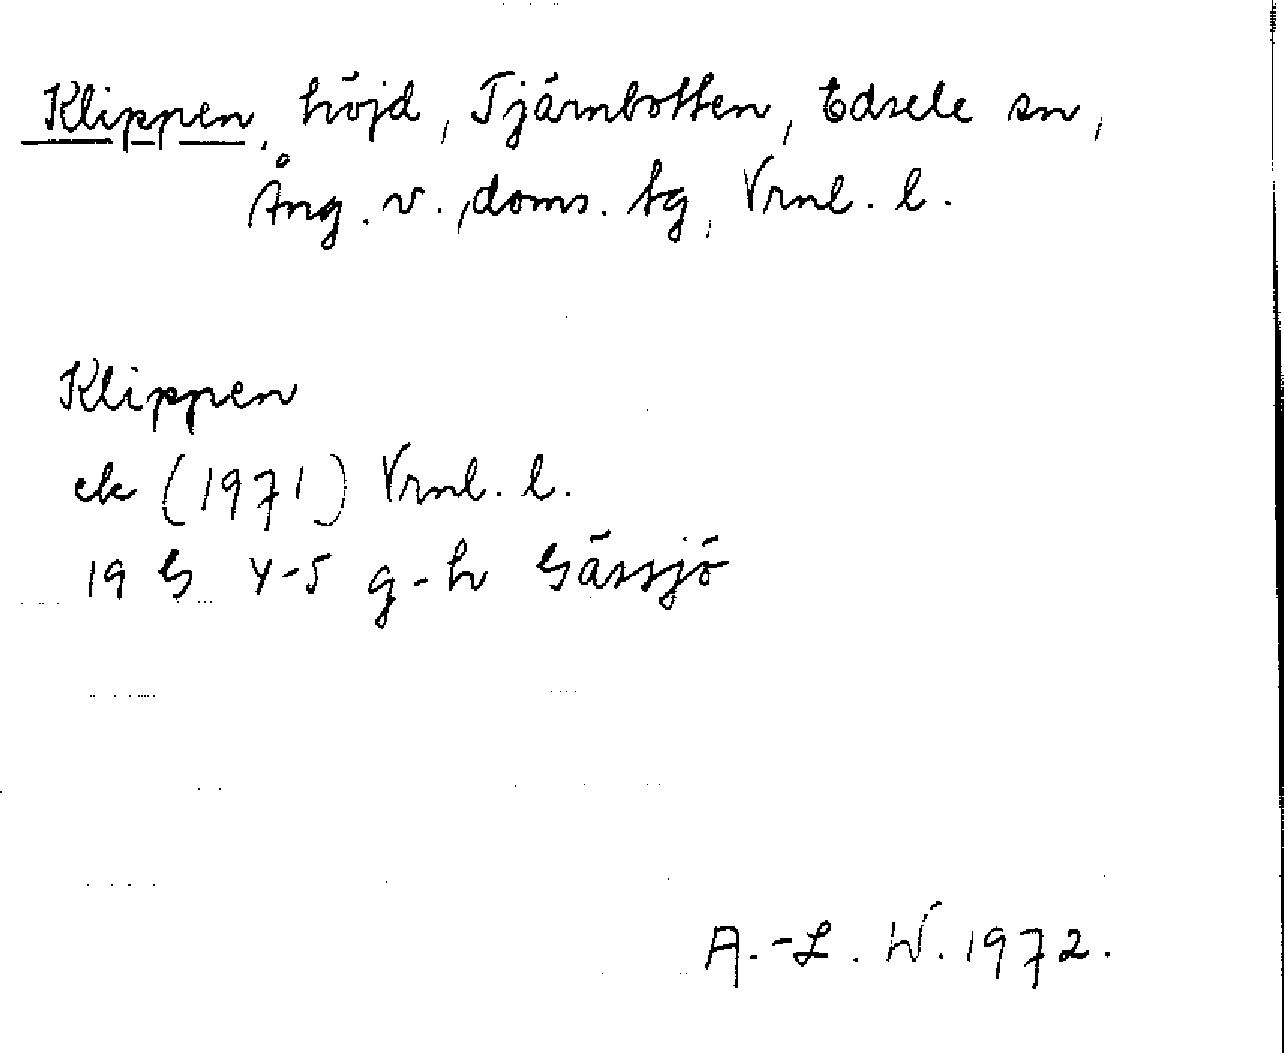 Klippen, höjd, Tjärnbotten, Edsele sn,
Ång. v., doms. tg, Vrnl. l.
Klippen
ek (1971) Vrnl. l.
19 G 4-5 g-h Gåssjö
A.-L. W. 1972.